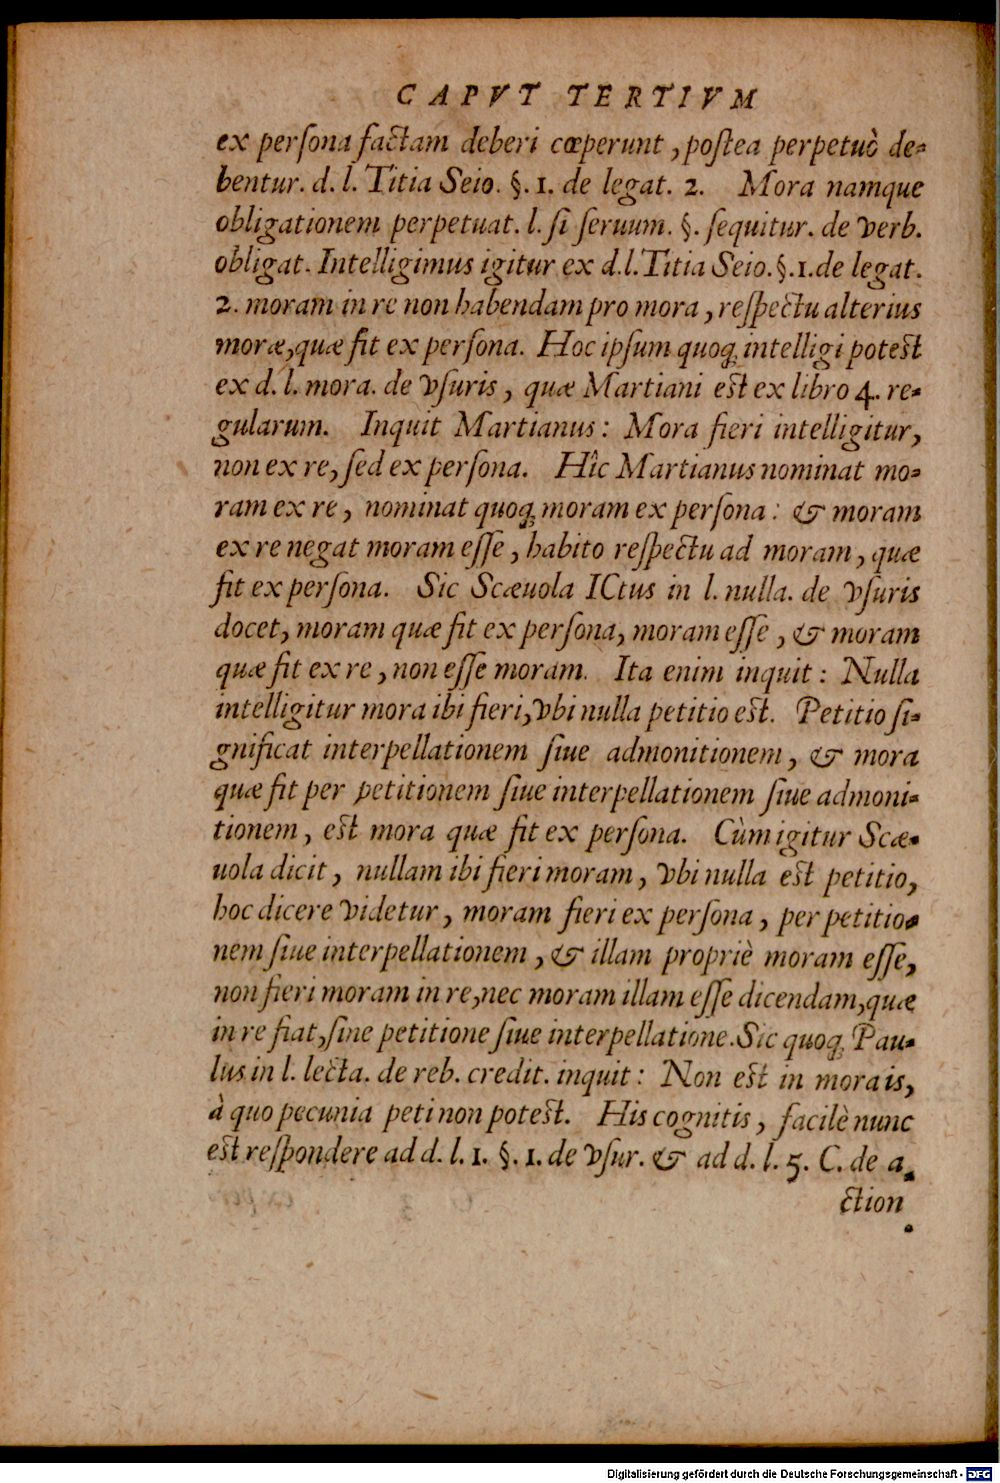 CAPVT TERTIVM
ex perſona factam deberi cœperunt, poſtea perpetuò de-
bentur. d. l. Titia Seio. §. 1. de legat. 2. Mora namque
obligationem perpetuat. l. ſi ſeruum. §. ſequitur. de verb.
obligat. Intelligimus igitur ex d. l. Titia Seio. §. 1. de legat.
2. moram in re non habendam pro mora, reſpectu alterius
moræ, quæ fit ex perſona. Hoc ipſum quoq; intelligi poteſt
ex d. l. mora. de vſuris, quæ Martiani eſt ex libro 4. re-
gularum. Inquit Martianus: Mora fieri intelligitur,
non ex re, ſed ex perſona. Hîc Martianus nominat mo-
ram ex re, nominat quoq; moram ex perſona: & moram
ex re negat moram eſſe, habito reſpectu ad moram, quæ
fit ex perſona. Sic Scæuola ICtus in l. nulla. de vſuris
docet, moram quæ fit ex perſona, moram eſſe, & moram
quæ fit ex re, non eſſe moram. Ita enim inquit: Nulla
intelligitur mora ibi fieri, vbi nulla petitio eſt. Petitio ſi-
gnificat interpellationem ſiue admonitionem, & mora
quæ fit per petitionem ſiue interpellationem ſiue admoni-
tionem, eſt mora quæ fit ex perſona. Cùm igitur Scæ-
uola dicit, nullam ibi fieri moram, vbi nulla eſt petitio,
hoc dicere videtur, moram fieri ex perſona, per petitio-
nem ſiue interpellationem, & illam propriè moram eſſe,
non fieri moram in re, nec moram illam eſſe dicendam, quæ
in re fiat, ſine petitione ſiue interpellatione. Sic quoq; Pau-
lus in l. lecta. de reb. credit. inquit: Non eſt in mora is,
à quo pecunia peti non poteſt. His cognitis, facilè nunc
eſt reſpondere ad d. l. 1. §. 1. de vſur. & ad d. l. 5. C. de a-
ction
Digitalisierung gefördert durch die Deutsche Forschungsgemeinschaft - DFG